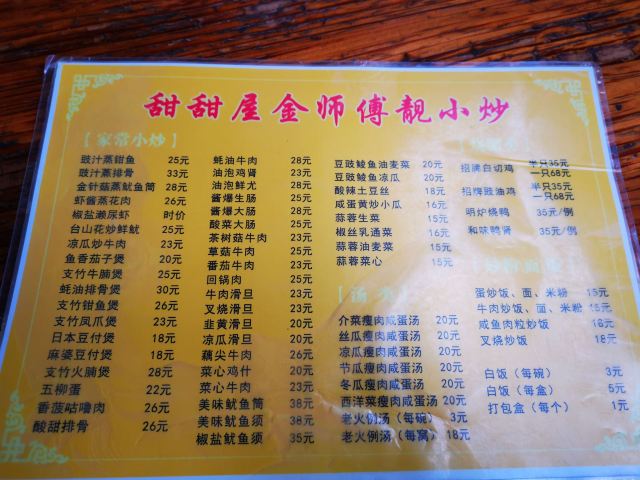 甜甜屋金师傅靓小炒
【家常小炒】
豉汁蒸钳鱼 25元
豉汁蒸排骨 33元
金针菇蒸鱿鱼筒 28元
虾酱蒸花肉 26元
椒盐濑尿虾 时价
台山花炒鲜鱿 25元
凉瓜炒牛肉 23元
鱼香茄子煲 20元
支竹牛腩煲 25元
蚝油排骨煲 30元
支竹钳鱼煲 26元
支竹凤爪煲 23元
日本豆付煲 18元
麻婆豆付煲 18元
支竹火腩煲 28元
五柳蛋 22元
香菠咕噜肉 26元
酸甜排骨 26元
蚝油牛肉 28元
油泡鸡肾 23元
油泡鲜尤 28元
酱爆生肠 28元
酱爆大肠 28元
酸菜大肠 28元
茶树菇牛肉 23元
草菇牛肉 25元
番茄牛肉 23元
回锅肉 25元
牛肉滑旦 23元
叉烧滑旦 23元
韭黄滑旦 20元
凉瓜滑旦 20元
藕尖牛肉 26元
菜心鸡什 20元
菜心牛肉 23元
美味鱿鱼筒 38元
美味鱿鱼须 38元
椒盐鱿鱼须 35元
豆豉鲮鱼油麦菜 20元
豆豉鲮鱼凉瓜 20元
酸辣土豆丝 18元
咸蛋黄炒小瓜 16元
蒜蓉生菜 15元
椒丝乳通菜 16元
蒜蓉油麦菜 15元
蒜蓉菜心 15元
【汤
介菜瘦肉咸蛋汤 20元
丝瓜瘦肉咸蛋汤 20元
凉瓜瘦肉咸蛋汤 20元
节瓜瘦肉咸蛋汤 20元
冬瓜瘦肉咸蛋汤 20元
西洋菜瘦肉咸蛋汤 20元
老火例汤（每碗） 3元
老火例汤（每窝） 18元
招牌白切鸡 半只35元
一只68元
招牌豉油鸡 半只35元
一只68元
明炉烧鸭 35元/例
和味鸭肾 35元/例
蛋炒饭、面、米粉 15元
牛肉炒饭、面、米粉 18元
咸鱼肉粒炒饭 18元
叉烧炒饭 18元
白饭（每碗） 3元
白饭（每盒） 5元
打包盒（每个） 1元